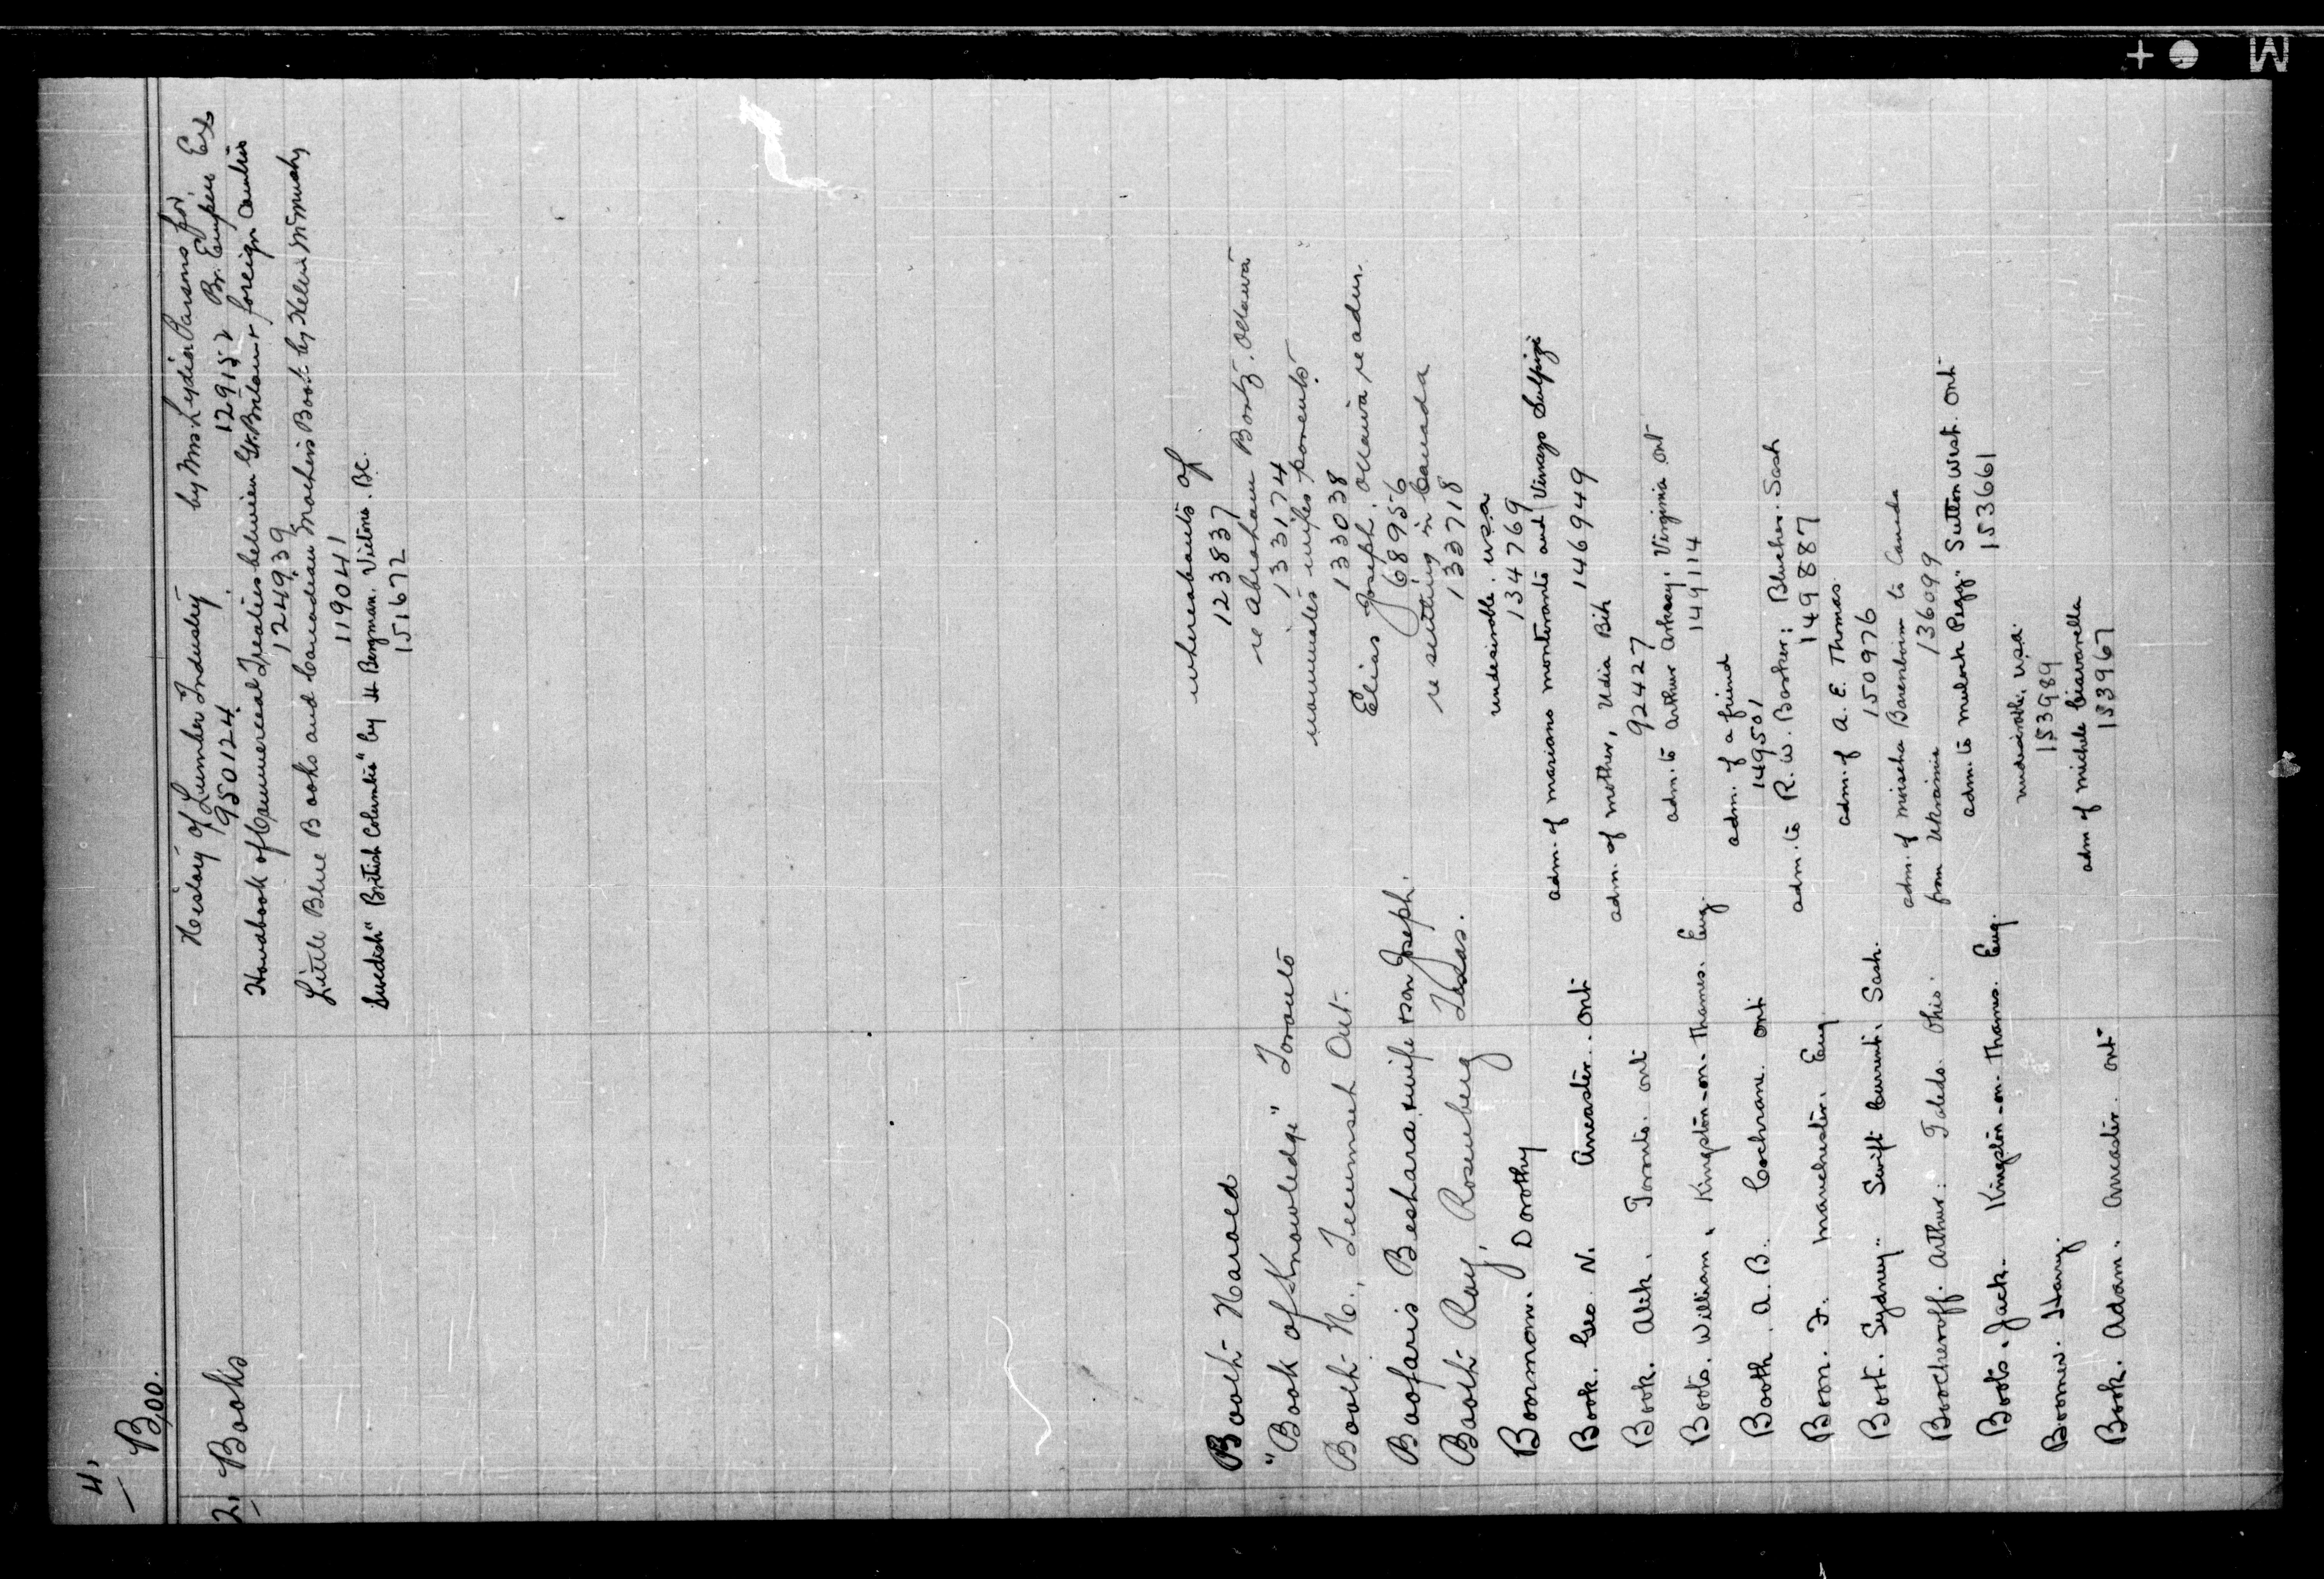 4.
Boo.
2. Books
History of Lumber Industry by Mrs. Lydia Parsons for
950124. 129152 Br. Empire Ex
Handbook of Commercial Treaties between Gt. Britain & foreign Countries
124939
Little Blue Books and Canadian Mothers Book by Helen McMurchy
119041
Swedish "British Columbia" by H Bergman. Victoria. B.C.
151672
Booth Harold whereabouts of
123837
"Book of Knowledge" Toronto re Abraham Bontz. Ottawa
133174
Booth H., Tecumseh Ont. wife's parents
133038
Boofaris Beshara & wife & son Joseph. Elias Joseph, Ottawa re adm.
689956
Booth Ray, Rosenberg Texas. re settling in Canada
133718
Boorman. Dorothy undesirable. USA
134769
Book. Geo. N. Ancaster. Ont adm. of mariano monterante and
146949
Book. Alek. Toronto. Ont adm. of mother, Udia Bih
92427
Boots. William. Kingston-on-Thames. Eng. adm. to Arthur Arksey. Virginia Ont
149114
Booth. A. B. Cochrane. Ont adm. of a friend
149501
Boon. F. Manchester. Eng adm. to R. W. Booker: Blucher. Sask
149887
Boot. Sydney. Swift Current. Sask. adm. of A. E. Thomas
150976
Boocheroff. Arthur. Toledo. Ohio. adm. of moischa Barenboim to Canada
from Ukrainia 136099
Boots. Jack. Kingston-on-Thames. Eng. adm. to mulock Pigg. Sutton West. Ont
153661
Boomer. Harry. undesirable, USA.
153989
Book. Adam. Ancaster. Ont adm of michele
153967